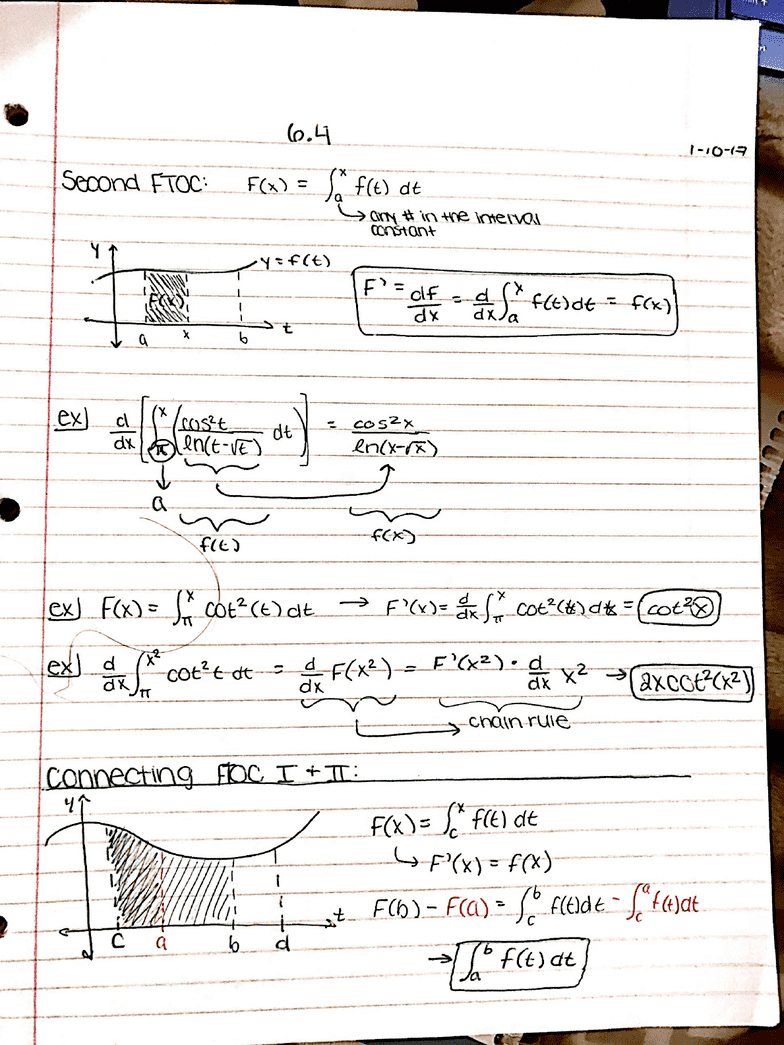 6.4
1-10-17
Second FTOC: F(x) = ∫ₐˣ f(t) dt
↳ any # in the interval
constant
y
y = f(t)
F(x)
a x b t
F' = df/dx = d/dx ∫ₐˣ f(t) dt = f(x)
ex] d/dx [∫_π^x (cos²t / ln(t-√t) dt)] = cos²x / ln(x-√x)
a
f(t) f(x)
ex] F(x) = ∫_π^x cot²(t) dt → F'(x) = d/dx ∫_π^x cot²(t) dt = cot²x
ex] d/dx ∫_π^x² cot²t dt = d/dx F(x²) = F'(x²) · d/dx x² → 2xcot²(x²)
chain rule
Connecting FTOC I + II:
y
t
c a b d
F(x) = ∫_c^x f(t) dt
↳ F'(x) = f(x)
F(b) - F(a) = ∫_c^b f(t)dt - ∫_c^a f(t)dt
→ ∫ₐᵇ f(t) dt